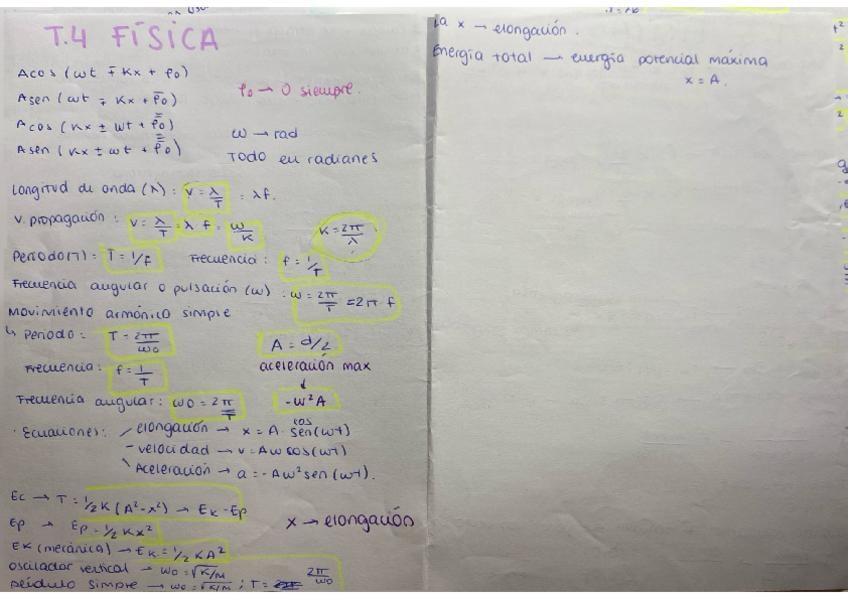 T.4 FÍSICA
Acos (ωt ∓ Kx + φ0)
Asen (ωt ∓ Kx + φ0)
φ0 → 0 siempre.
Acos (Kx ± ωt + φ0)
Asen (Kx ± ωt + φ0)
ω → rad
TODO en radianes
Longitud de onda (λ): v = λ/T = λf.
v. propagación: v = λ/T = λ f = ω/K
K = 2π/λ
Periodo(T): T = 1/f Frecuencia: f = 1/T
Frecuencia angular o pulsación (ω): ω = 2π/T = 2π f
Movimiento armónico simple
↳ Periodo: T = 2π/ω0 A = d/2
Frecuencia: f = 1/T aceleración max
↓
Frecuencia angular: ω0 = 2π/T -ω²A
· Ecuaciones: elongación → x = A · cos sen(ωt)
- velocidad → v = Aω cos(ωt)
Aceleración → a = - Aω² sen (ωt).
Ec → T = 1/2 K (A² - x²) → Ek - Ep
Ep → Ep = 1/2 Kx²
x → elongación
EK (mecánica) → EK = 1/2 KA²
oscilador vertical → ω0 = √K/M
péndulo simple → ω0 = √K/M ; T = 2π/ω0
La x → elongación.
Energía total → energía potencial máxima
x = A.